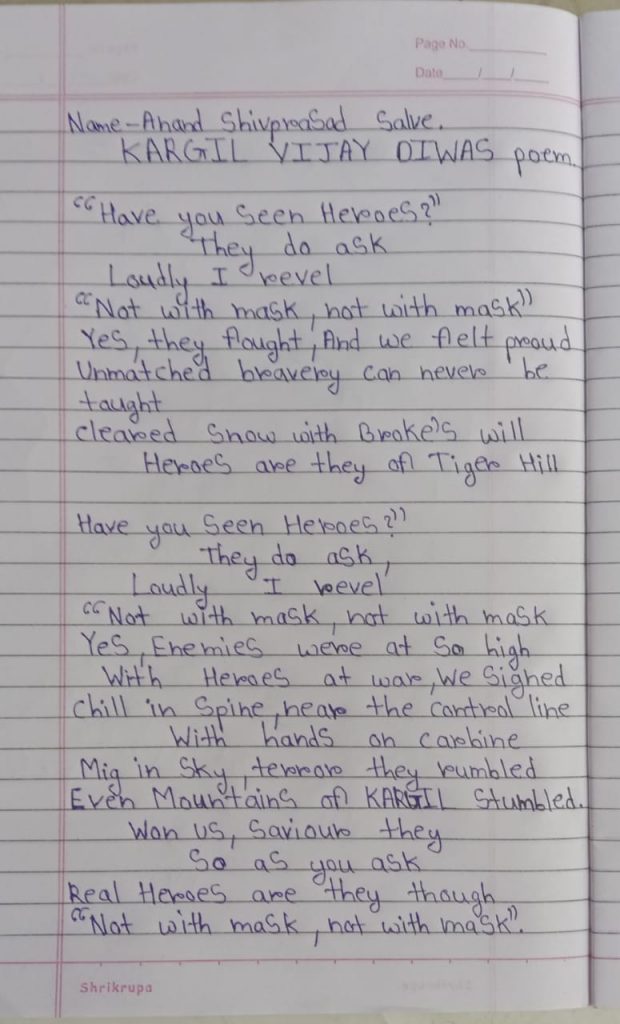 Page No.
Date / /
Name-Anand Shivprasad Salve.
KARGIL VIJAY DIWAS poem.
"Have you Seen Heroes?"
They do ask
Loudly I revel
"Not with mask, not with mask"
Yes, they fought, And we felt proud
Unmatched bravery can never be
taught
cleared Snow with Broke's will
Heroes are they of Tiger Hill
Have you Seen Heroes?"
They do ask,
Loudly I revel
"Not with mask, not with mask
Yes, Enemies were at So high
With Heroes at war, We Signed
Chill in Spine, near the Control line
With hands on carbine
Mig in Sky, terror they rumbled
Even Mountains of KARGIL Stumbled.
Won US, Saviour they
So as you ask
Real Heroes are they though
"Not with mask, not with mask".
Shrikrupa